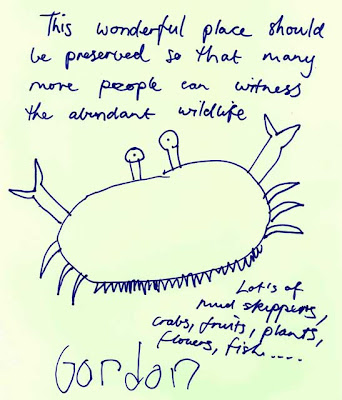 This wonderful place should
be preserved so that many
more people can witness
the abundant wildlife
Lot's of
mud skippers,
crabs, fruits, plants,
flowers, fish.....
Gordon